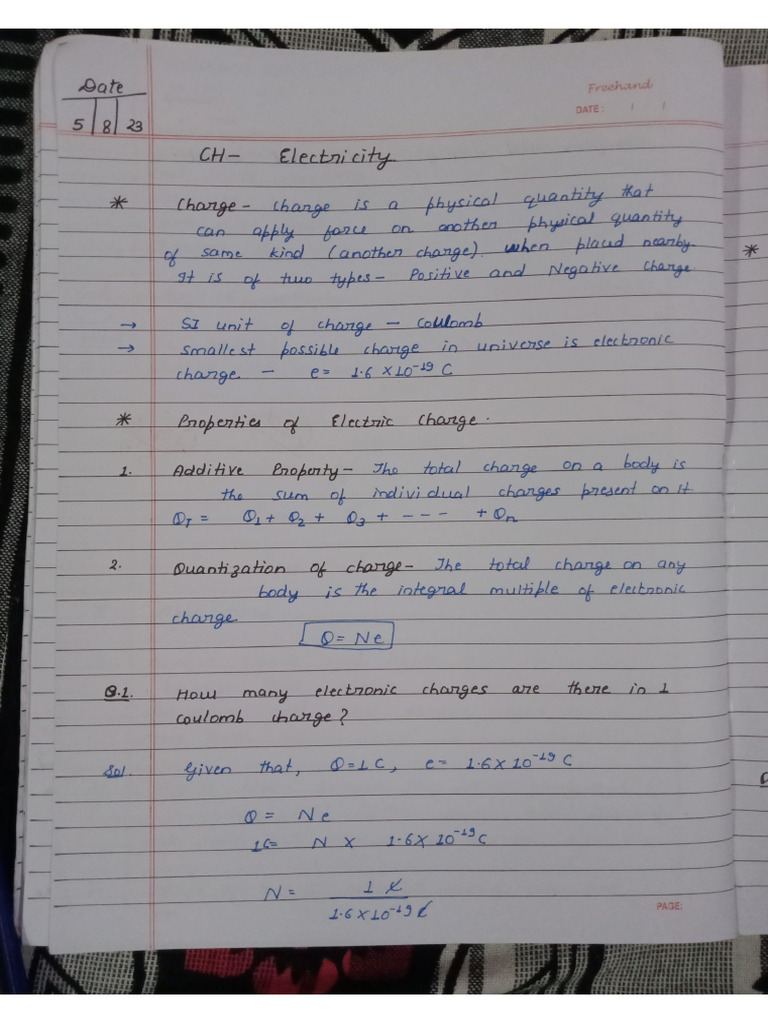 Date
5 | 8 | 23
Freehand
DATE: / /
CH- Electricity
* Charge - Charge is a physical quantity that
can apply force on another physical quantity
of same kind (another charge) when placed nearby.
It is of two types - Positive and Negative Charge
→ SI unit of charge - Coulomb
→ Smallest possible charge in universe is electronic
charge - e = 1.6 × 10⁻¹⁹ C
* Properties of Electric Charge.
1. Additive Property - The total charge on a body is
the sum of individual charges present on it
Q_T = Q₁ + Q₂ + Q₃ + ---- + Qₙ
2. Quantization of charge - The total charge on any
body is the integral multiple of electronic
charge.
Q = Ne
Q.1. How many electronic charges are there in 1
coulomb charge?
Sol. Given that, Q = 1 C, e = 1.6 × 10⁻¹⁹ C
Q = Ne
1C = N × 1.6 × 10⁻¹⁹ C
N = 1 C
1.6 × 10⁻¹⁹ C
PAGE: